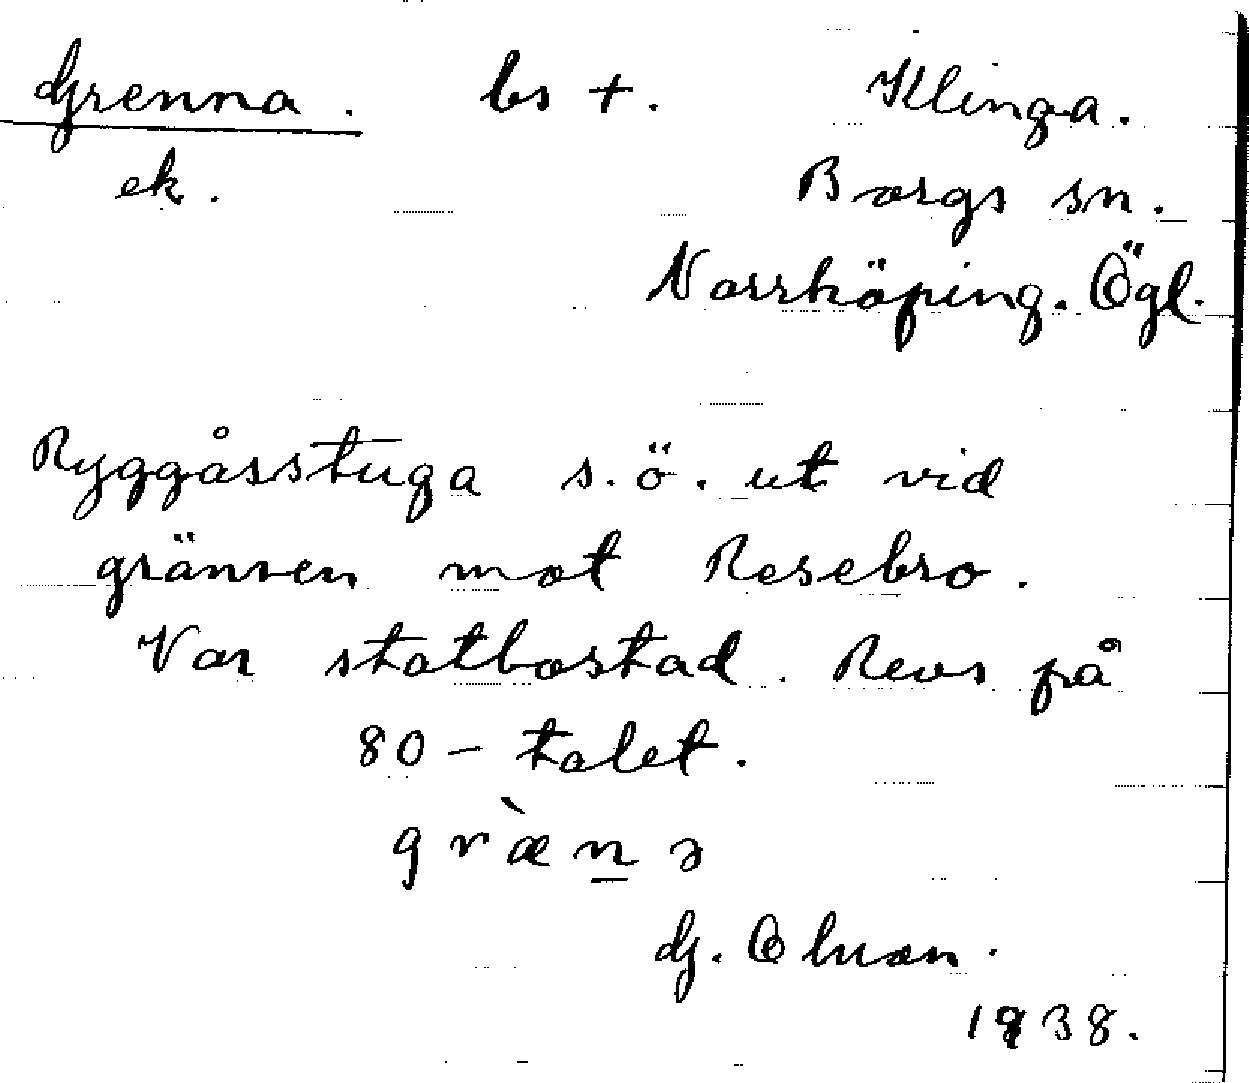 Grenna. bs +. Klinga.
ek. Borgs sn.
Norrköping. Ögl.
Ryggåsstuga s.ö. ut vid
gränsen mot Resebro.
Var statbostad. Revs på
80-talet.
græ̀n̲ə
G.
1938.